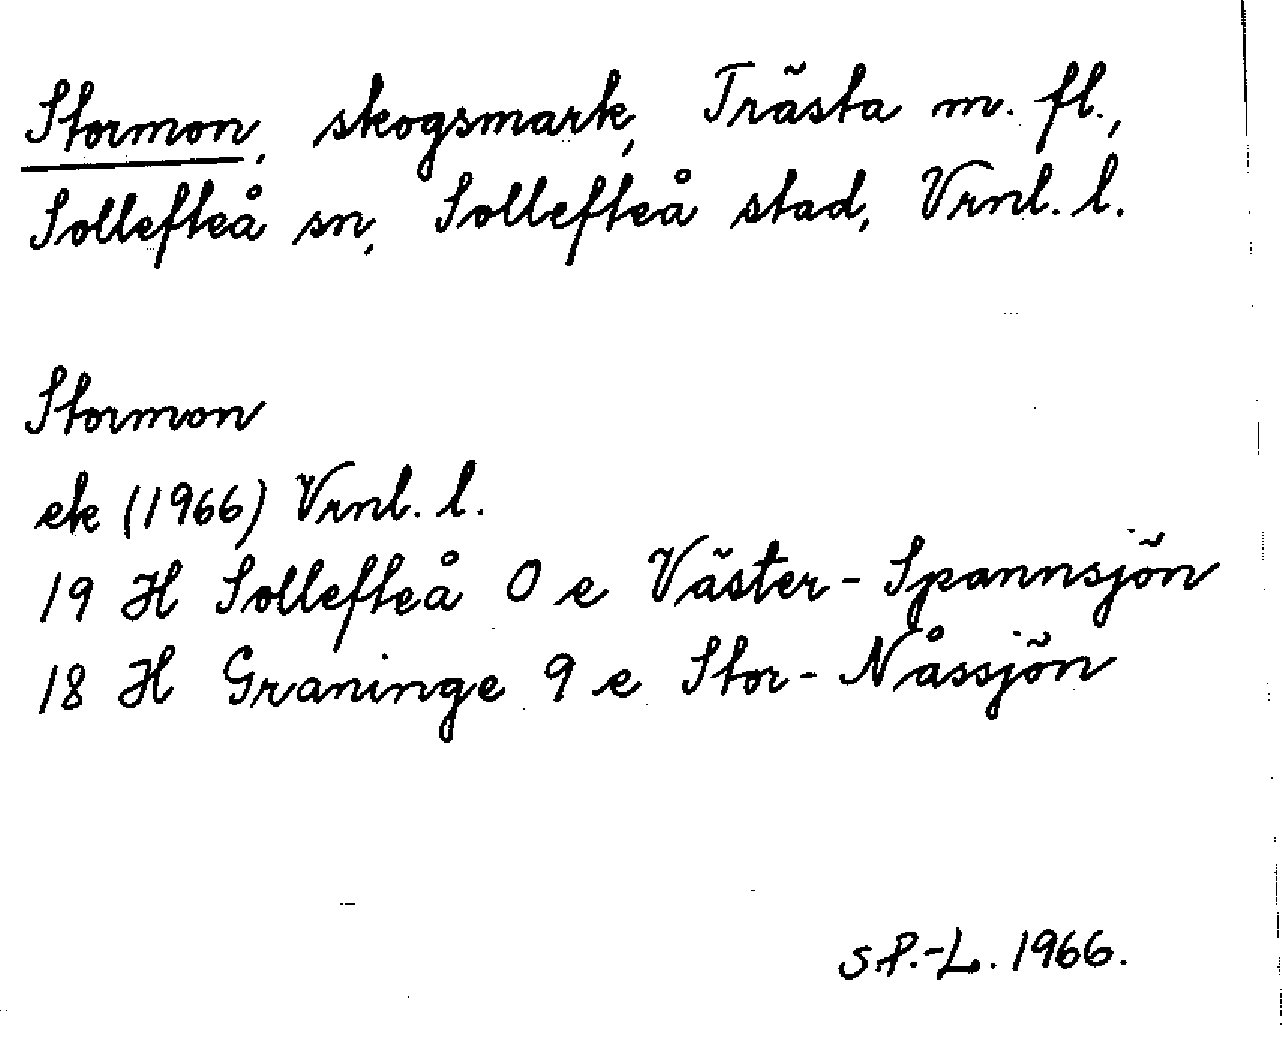 Stormon, skogsmark, Trästa m. fl.,
Sollefteå sn, Sollefteå stad, Vrnl. l.
Stormon
ek (1966) Vrnl. l.
19 H Sollefteå 0 e Väster-Spannsjön
18 H Graninge 9 e Stor-Nåssjön
S P.-L. 1966.